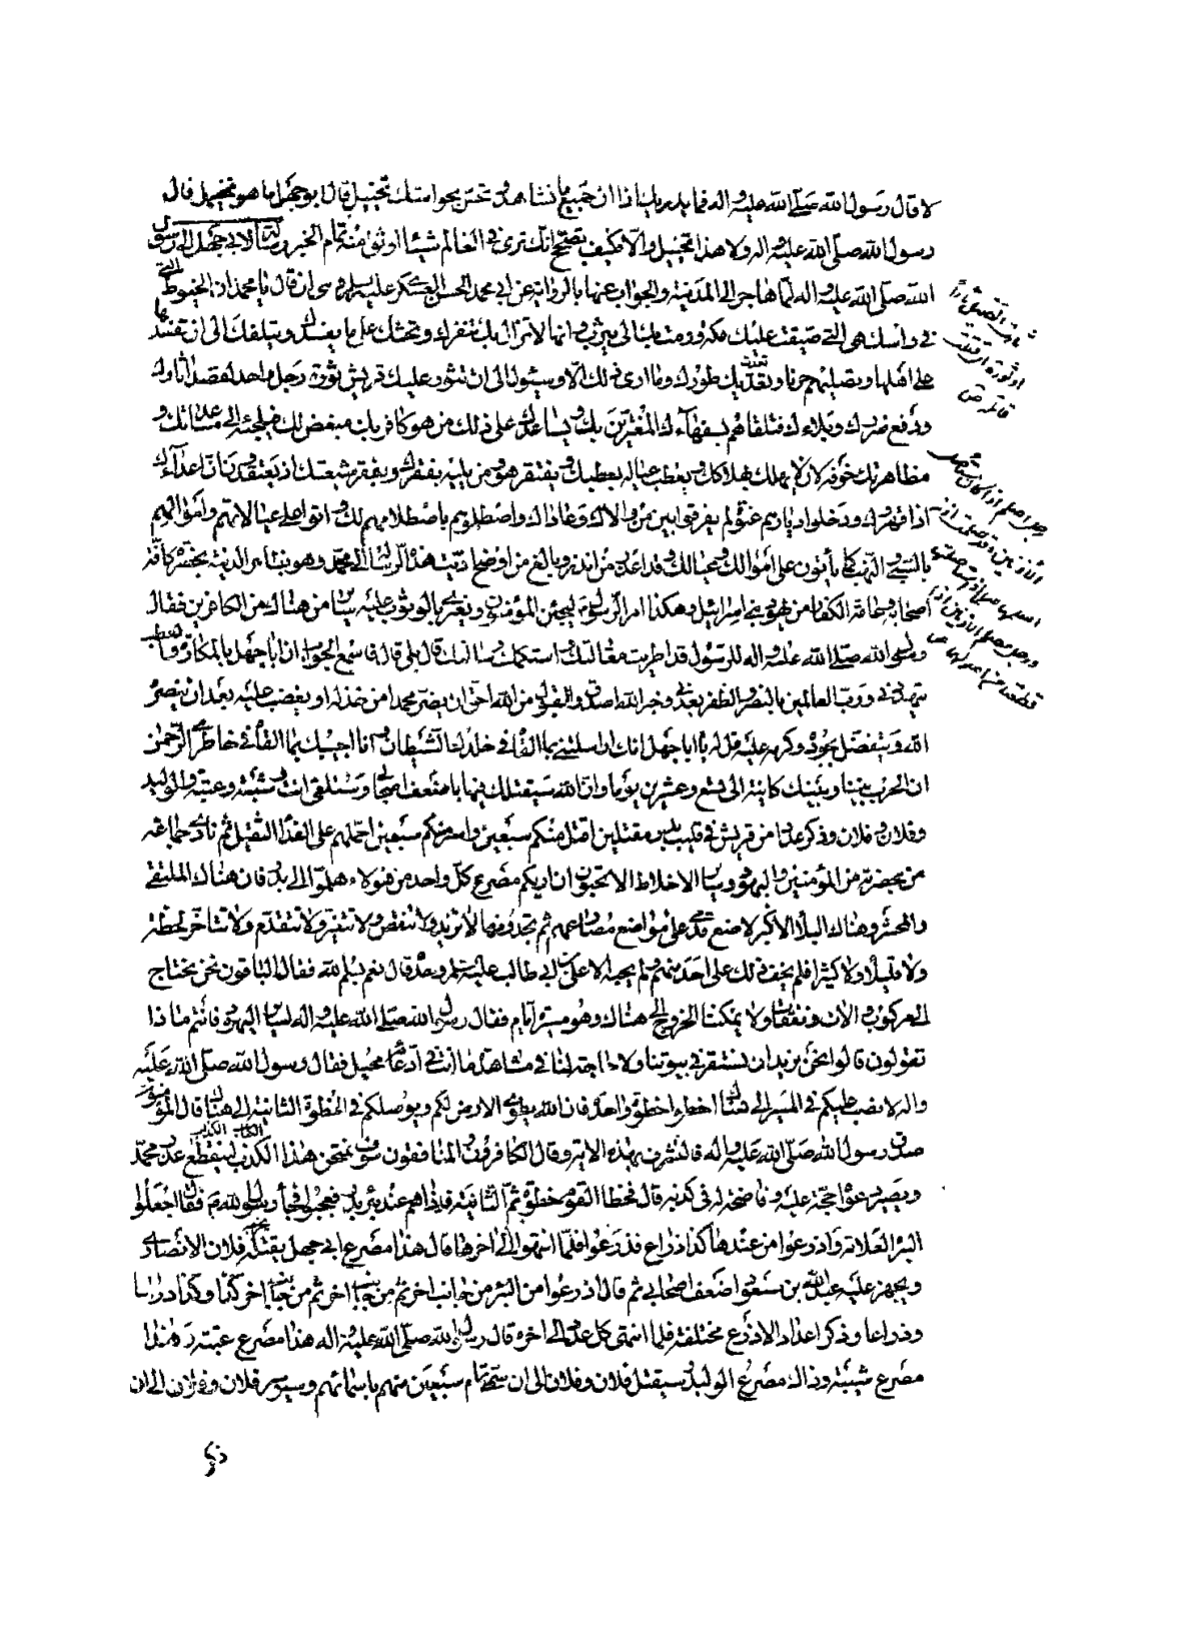 لا قال رسول الله صلى الله عليه واله فما يدريك اذا ان جميع ما تشاهد وتحس بحواسك تخييل قال ابو جهل ما هو تخييل قال
رسول الله صلى الله عليه واله ولا هذا تخييل والا فكيف تصحح انك ترى في العالم شيئا اوثق منه تمام الخبر ورسالة لابي جهل الى رسول
الله صلى الله عليه واله لما هاجر الى المدينة والجواب عنها بالرواية عن ابي محمد الحسن العسكري عليه السلم وهي ان قال يا محمد ان الخيوط التي
في راسك هي التي ضيقت عليك مكة ورمت بك الى يثرب وانها لا تزال بك تنفرك وتحثك على ما يفسدك ويتلفك الى ان تفسدها
على اهلها وتصليهم حر نار تعديك طورك وما ارى ذلك الا وسيئول الى ان تثور عليك قريش ثورة رجل واحد لقصد اثارك
ودفع ضررك وبلاءك فتلقاهم بسفهاءك المغترين بك ويساعدك على ذلك من هو كافر بك مبغض لك فيلجئه الى مساعدتك و
مظاهرتك خوفه لان لا يهلك بهلاكك ويعطب عياله بعطبك ويفتقر هو ومن يليه بفقرك وبفقر شيعتك اذ يعتقدون ان اعداءك
اذا قهروك ودخلوا ديارهم عنوة لم يفرقوا بين من والاك وعاداك واصطلموهم باصطلامهم لك واتوا على عيالاتهم واموالهم
بالسبي والنهب كما ياتون على اموالك وعيالك وقد اعذر من انذر وبالغ من اوضح اديت هذه الرسالة الى محمد وهو بظاهر المدينة بحضرة كافة
اصحابه وعامة الكفار من يهود بني اسرائيل وهكذا امر الرسول ليجبن المؤمنين ويغري بالوثوب عليه سائر من هناك من الكافرين فقال
رسول الله صلى الله عليه واله للرسول قد اطريت مقالتك واستكملت رسالتك قال بلى قال فاسمع الجواب ان ابا جهل بالمكاره والعطب
يتهددني ورب العالمين بالنصر والظفر يعدني وخبر الله اصدق والقبول من الله احق لن يضر محمدا من خذله او يغضب عليه بعد ان ينصره
الله ويتفضل بجوده وكرمه عليه قل له يا ابا جهل انك راسلتني بما القاه في خلدك الشيطان وانا اجيبك بما القاه في خاطري الرحمن
ان الحرب بيننا وبينك كاينة الى تسع وعشرين يوما وان الله سيقتلك فيها باضعف اصحابي وستلقى انت وشيبة وعتبة والوليد
وفلان وفلان وذكر عددا من قريش في قليب بدر مقتلين اقتل منكم سبعين واسر منكم سبعين احملهم على الفداء الثقيل ثم نادى جماعة
من بحضرته من المؤمنين واليهود وسائر الاخلاط الا تحبون ان اريكم مصرع كل واحد من هؤلاء هلموا الى بدر فان هناك الملتقى
والمحشر وهناك البلاء الاكبر لاضع قدمي على مواضع مصارعهم ثم تجدونها لا تزيد ولا تنقص ولا تتغير ولا تتقدم ولا تتاخر لحظة
ولا قليلا ولا كثيرا فلم يخف ذلك على احد منهم ولم يجبه الا علي بن ابي طالب عليه السلم وحده قال نعم بسم الله فقال الباقون نحن نحتاج
الى مركوب والات ونفقات ولا يمكننا الخروج الى هناك وهو مسير ايام فقال رسول الله صلى الله عليه واله لسائر اليهود فانتم ماذا
تقولون قالوا نحن نريد ان نستقر في بيوتنا ولا حاجة لنا في مشاهدة ما انت في ادعائه محيل فقال رسول الله صلى الله عليه
واله لا نصب عليكم في المسير الى هناك اخطوا خطوة واحدة فان الله يطوي الارض لكم ويوصلكم في الخطوة الثانية الى هناك قال المؤمنون
صدق رسول الله صلى الله عليه واله فلنشرف بهذه الاية وقال الكافرون والمنافقون سوف نمتحن هذا الكذب لينقطع عذر محمد
ويصير دعواه حجة عليه وفاضحة له في كذبه قال فخطا القوم خطوة ثم الثانية فاذا هم عند بئر بدر فعجبوا فجاء رسول الله ص فقال اجعلوا
البئر العلامة واذرعوا من عندها كذا ذراع فذرعوا فلما انتهوا الى اخرها قال هذا مصرع ابي جهل يقتله فلان الانصاري
ويجهز عليه عبد الله بن مسعود اضعف اصحابي ثم قال اذرعوا من البئر من جانب اخر ثم من جانب اخر ثم من جانب اخر كذا وكذا ذراعا
وذراعا وذكر اعداد الاذرع مختلفة فلما انتهى كل عدد الى اخره قال رسول الله صلى الله عليه واله هذا مصرع عتبة وهذا
مصرع شيبة وذاك مصرع الوليد وسيقتل فلان وفلان الى ان سمى تمام سبعين منهم باسمائهم وسيوسر فلان وفلان الى ان